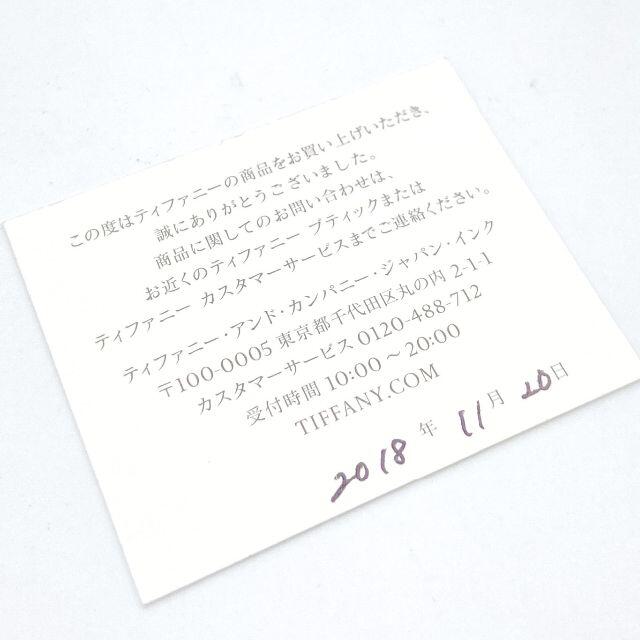 この度はティファニーの商品をお買い上げいただき、
誠にありがとうございました。
商品に関してのお問い合わせは、
お近くのティファニー ブティックまたは
ティファニー カスタマーサービスまでご連絡ください。
ティファニー・アンド・カンパニー・ジャパン・インク
〒100-0005 東京都千代田区丸の内 2-1-1
カスタマーサービス 0120-488-712
受付時間 10:00 ~ 20:00
TIFFANY.COM
2018 年 11 月 20 日